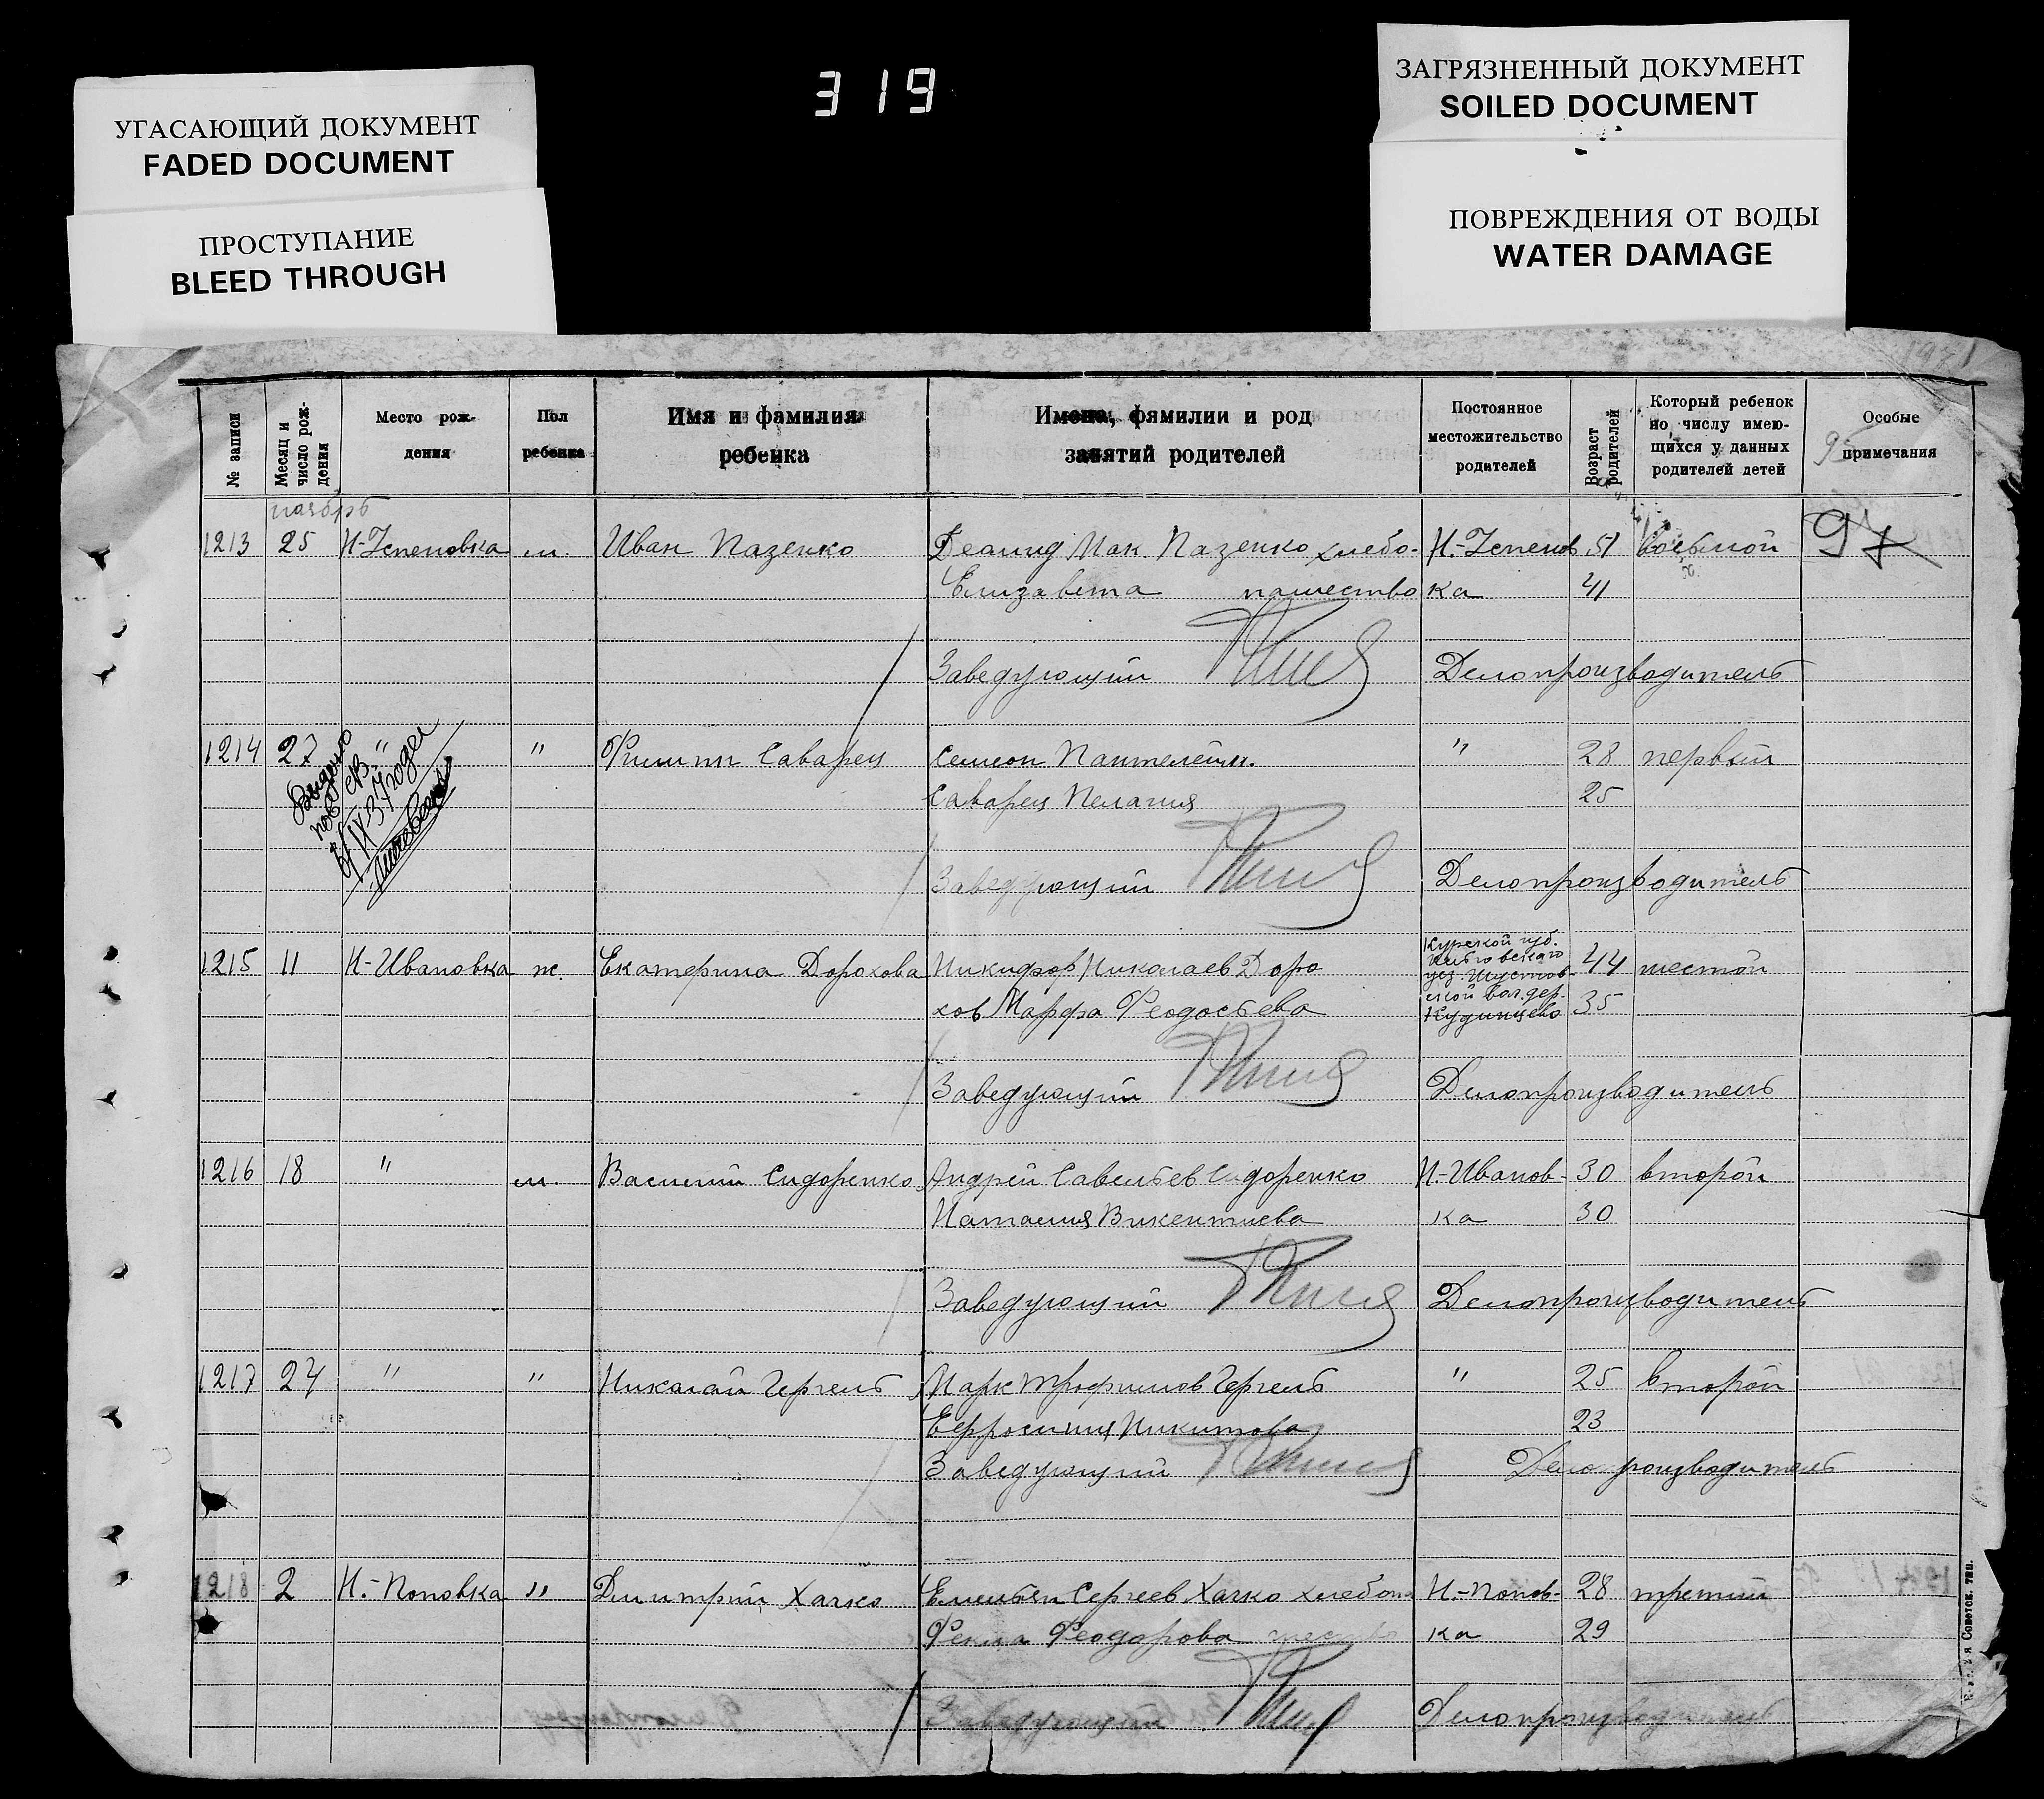 УГАСАЮЩИЙ ДОКУМЕНТ
FADED DOCUMENT
ПРОСТУПАНИЕ
BLEED THROUGH
319
ЗАГРЯЗНЕННЫЙ ДОКУМЕНТ
SOILED DOCUMENT
ПОВРЕЖДЕНИЯ ОТ ВОДЫ
WATER DAMAGE
№ записи
Месяц и число рож-дения
Место рож-
дения
Пол
ребенка
Имя и фамилия
ребенка
Имена, фамилии и род
занятий родителей
Постоянное
местожительство
родителей
Возраст родителей
Который ребенок
по числу имею-
щихся у данных
родителей детей
Особые
примечания
ноябрь
1213 25 м. Иван Пазенко Мак. Пазенко хлебо- 51 восьмой 97
Елизавета пашество ка 41
Заведующий Делопроизводитель
1214 27 " " Филипп Саварец Семеон Пантелейм. " 28 первый
Саварец Пелагия 25
Выдано
пов. св.
IX 37 года
Заведующий Делопроизводитель
1215 11 Н-Ивановка ж. Екатерина Дорохова Никифор Николаев Доро 44 шестой
хов Марфа Феодосьева 35
Курской губ.
Льговского
уез.
ской вол. дер.
Кудинцево
Заведующий Делопроизводитель
1216 18 " м. Василий Сидоренко Андрей Савельев Сидоренко Н.-Иванов- 30 второй
Наталия Викентиева ка 30
Заведующий Делопроизводитель
1217 24 " " Николай Гергель Марк Трофимов Гергель " 25 второй
Ефросиния Никитова 23
Заведующий Делопроизводитель
1218 2 Н.-Поповка " Димитрий Халко Емельян Сергеев Халко хлебопа Н.-Попов- 28 третий
Фекла Феодорова шество ка 29
Заведующий Делопроизводитель
2-я Советск. тип.